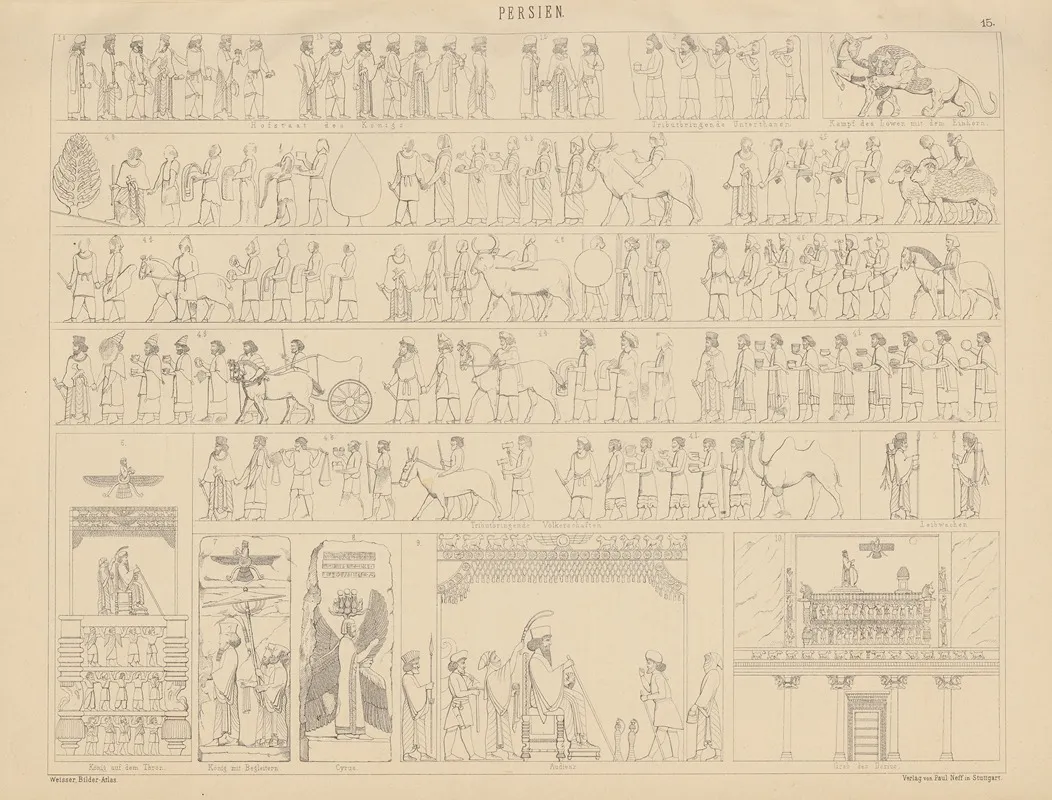 PERSIEN.
15.
Hofstaat des Königs.
Tributbringende Unterthanen.
Kampf des Löwen mit dem Einhorn.
Tributbringende Völkerschaften.
Leibwachen.
6.
7.
8.
9.
10.
König auf dem Thron.
König mit Begleitern.
Cyrus.
Audienz.
Grab des Darius.
Weisser, Bilder-Atlas.
Verlag von Paul Neff in Stuttgart.